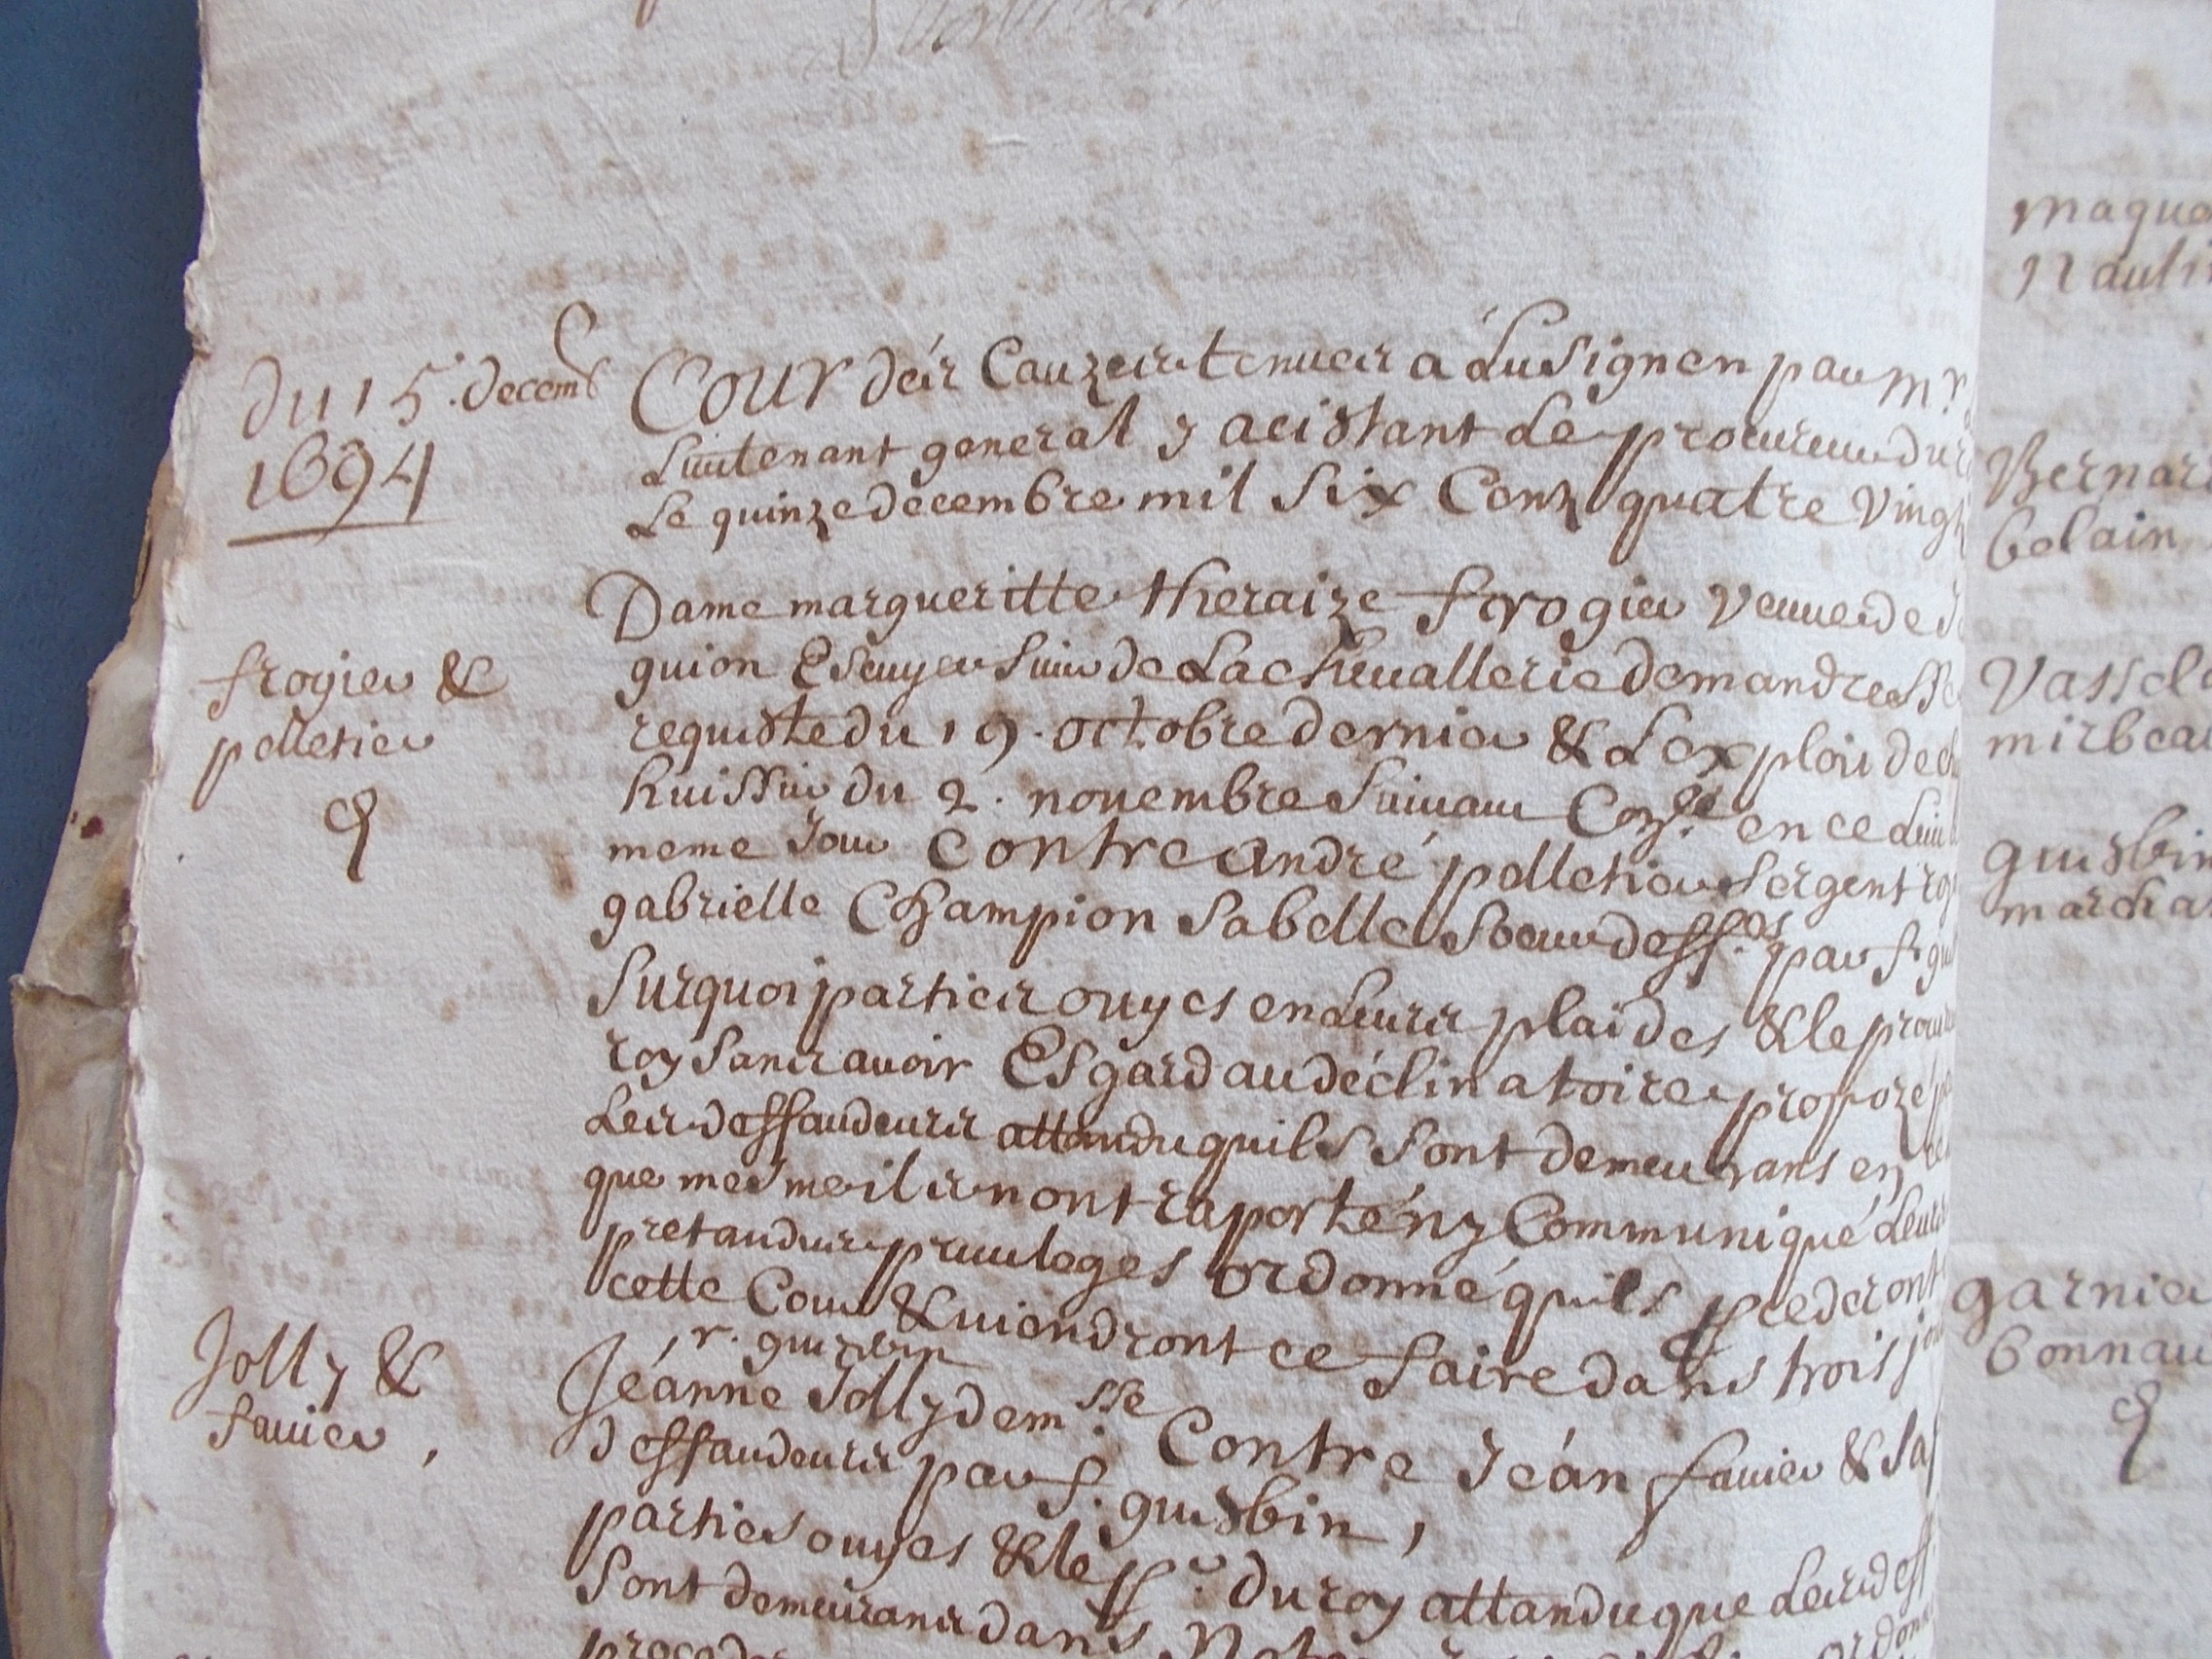 du 15. decemb
1694
Cour des Causes tenues a Lusignen par Mr
Lieutenant general y acistant Le procureur du r
Le quinze decembre mil six Cens quatre vingt
frogier &
pelletier
Dame margueritte theraize frogier veuve de
guion Escuyer sieur de La chevallerie demandresse
requeste du 19. octobre dernier & Lexploit de
huissier du 2. novembre suivant Con.lé en ce Lieu
meme jour contre andré pelletier sergent roy
gabrielle Champion sa belle soeur deff.es par f. gui
Surquoi parties ouyes en Leurs plaides & le procur
roy sans avoir Esgard au déclinatoire propozé
Les deffandeurs attandu quils sont demeurans en
que mesme ils nont raporté ny Communiqué Leurs
pretandus privileges ordonné quils pcederont
cette Cour & viendront ce faire dans trois jou
r. guizbin
Jolly &
favier,
Jéanne Jolly dem.sse Contre Jéan favier & sa f
deffandeurs par f. guisbin,
parties ouyes & le pr. du roy attandu que Les deff
sont demeurans dans
maque
Naulin
Bernard
belain
Vassel
mirbeau
guisbin
marcha
garnier
bonnau